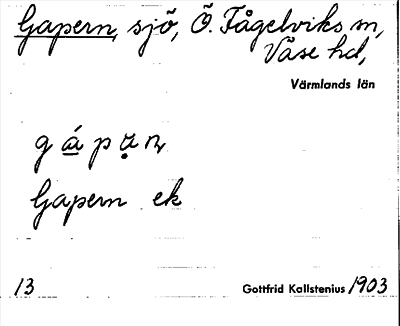 Gapern, sjö, Ö. Fågelviks sn,
Väse hd,
Värmlands län
Gapern ek
13
Gottfrid Kallstenius 1903